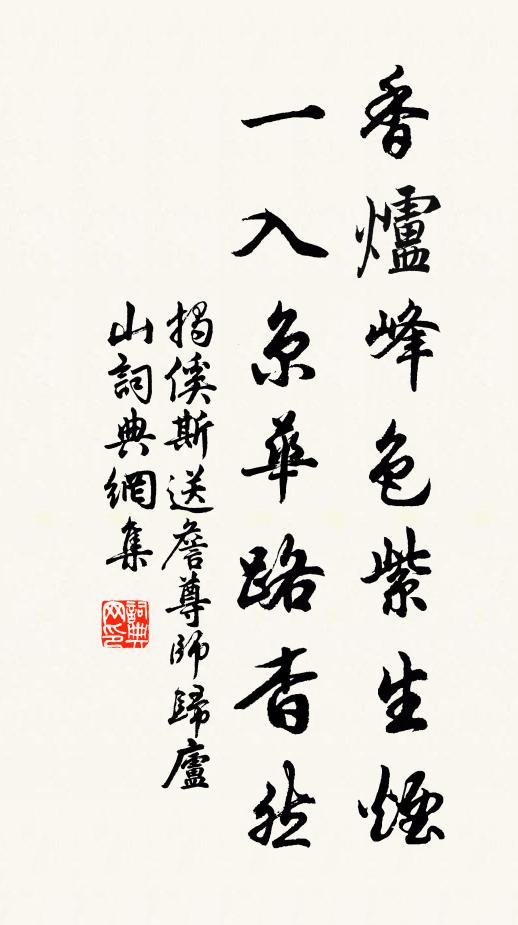 香爐峰色紫生煙
一入京華路杳然
揭傒斯送詹尊師歸廬
山詞典網集
詞典网印